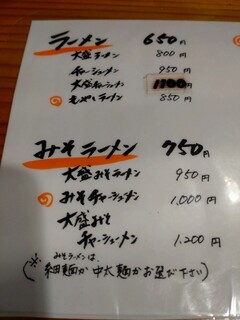 ラーメン 650円
大盛ラーメン 800円
チャーシューメン 950円
大盛チャーシューメン 1100円
もやしラーメン 850円
みそラーメン 750円
大盛みそラーメン 950円
みそチャーシューメン 1.000円
大盛みそ
チャーシューメン 1.200円
※ みそラーメンは、
(細麺か中太麺かお選び下さい)